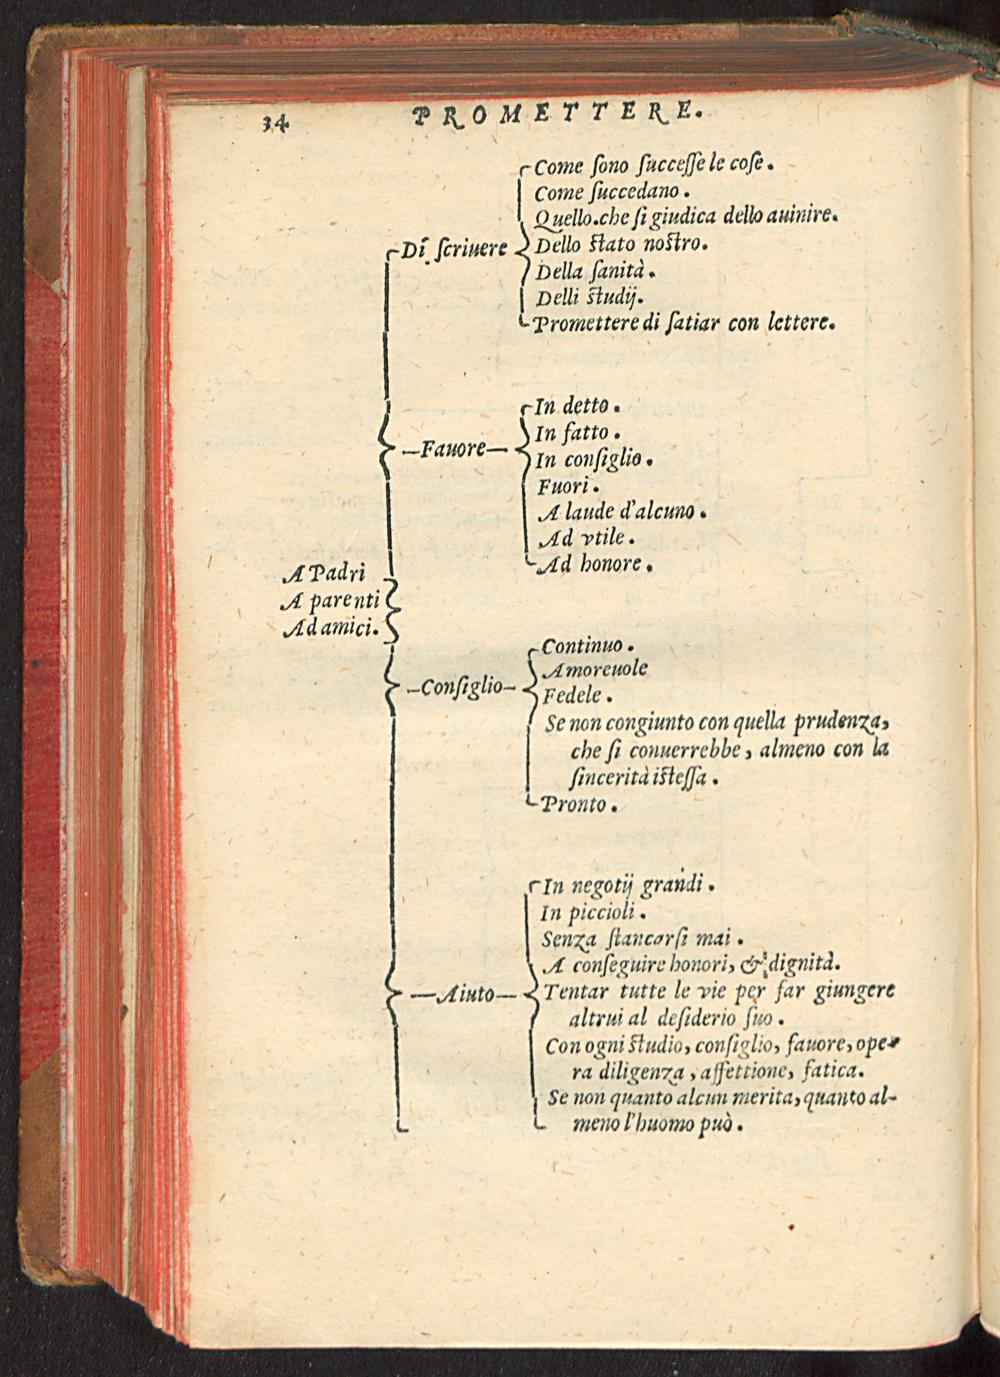 34
PROMETTERE.
Come ſono ſucceſſe le coſe.
Come ſuccedano.
Quello.che ſi giudica dello auinire.
Di ſcriuere
Dello ſtato noſtro.
Della ſanità.
Delli ſtudij.
Promettere di ſatiar con lettere.
In detto.
In fatto.
Fauore
In conſiglio.
Fuori.
A laude d'alcuno.
Ad vtile.
Ad honore.
A Padri
A parenti
Ad amici.
Continuo.
Amoreuole
Conſiglio
Fedele.
Se non congiunto con quella prudenza,
che ſi conuerrebbe, almeno con la
ſincerità iſteſſa.
Pronto.
In negotij grandi.
In piccioli.
Senza ſtancarſi mai.
A conſeguire honori, & dignità.
Aiuto
Tentar tutte le vie per far giungere
altrui al deſiderio ſuo.
Con ogni ſtudio, conſiglio, fauore, ope-
ra diligenza, affettione, fatica.
Se non quanto alcun merita, quanto al-
meno l'huomo può.